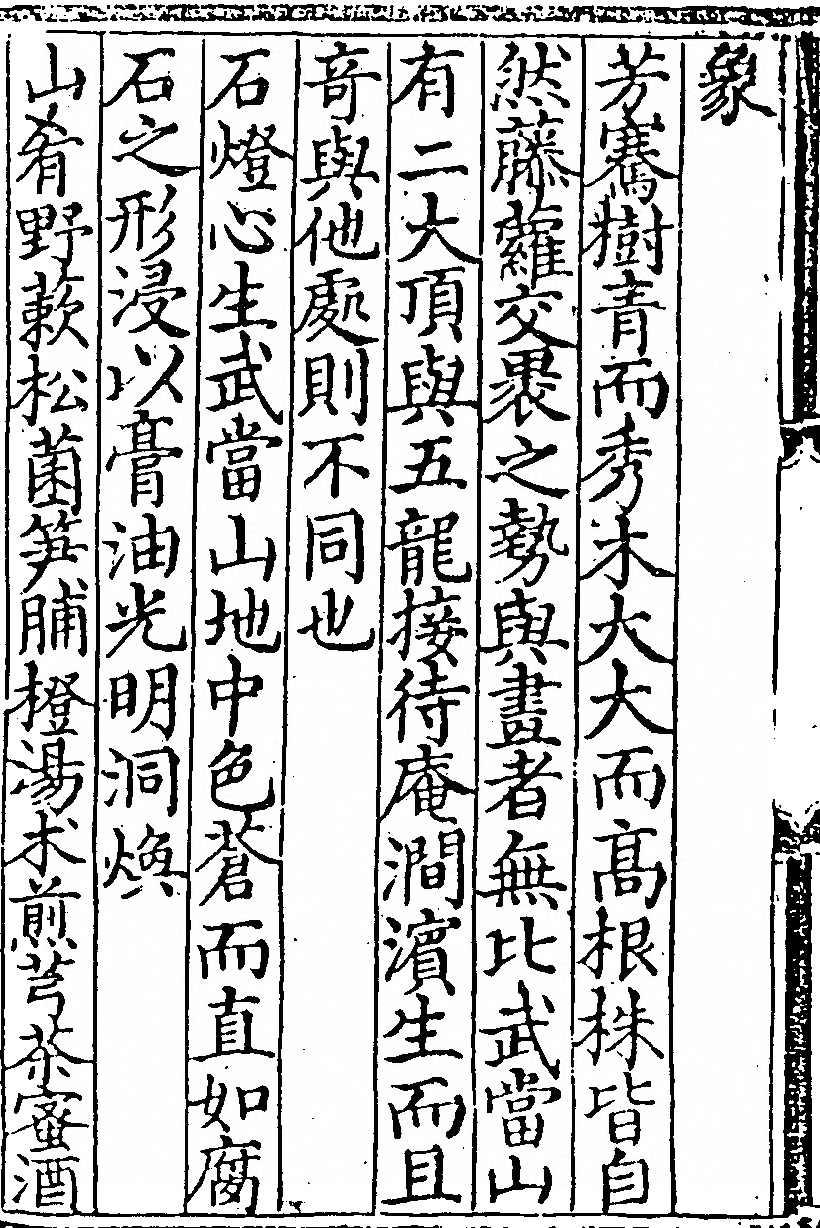 象
芳騫樹青而秀木大大而髙根株皆自
然藤蘿交褁之勢與畫者無比武當山
有二大頂與五龍接待庵澗濱生而且
竒與他處則不同也
石燈心生武當山地中色蒼而直如腐
石之形浸以膏油光明洞煥
山肴野蔌松菌笋脯橙湯术煎芎茶蜜酒